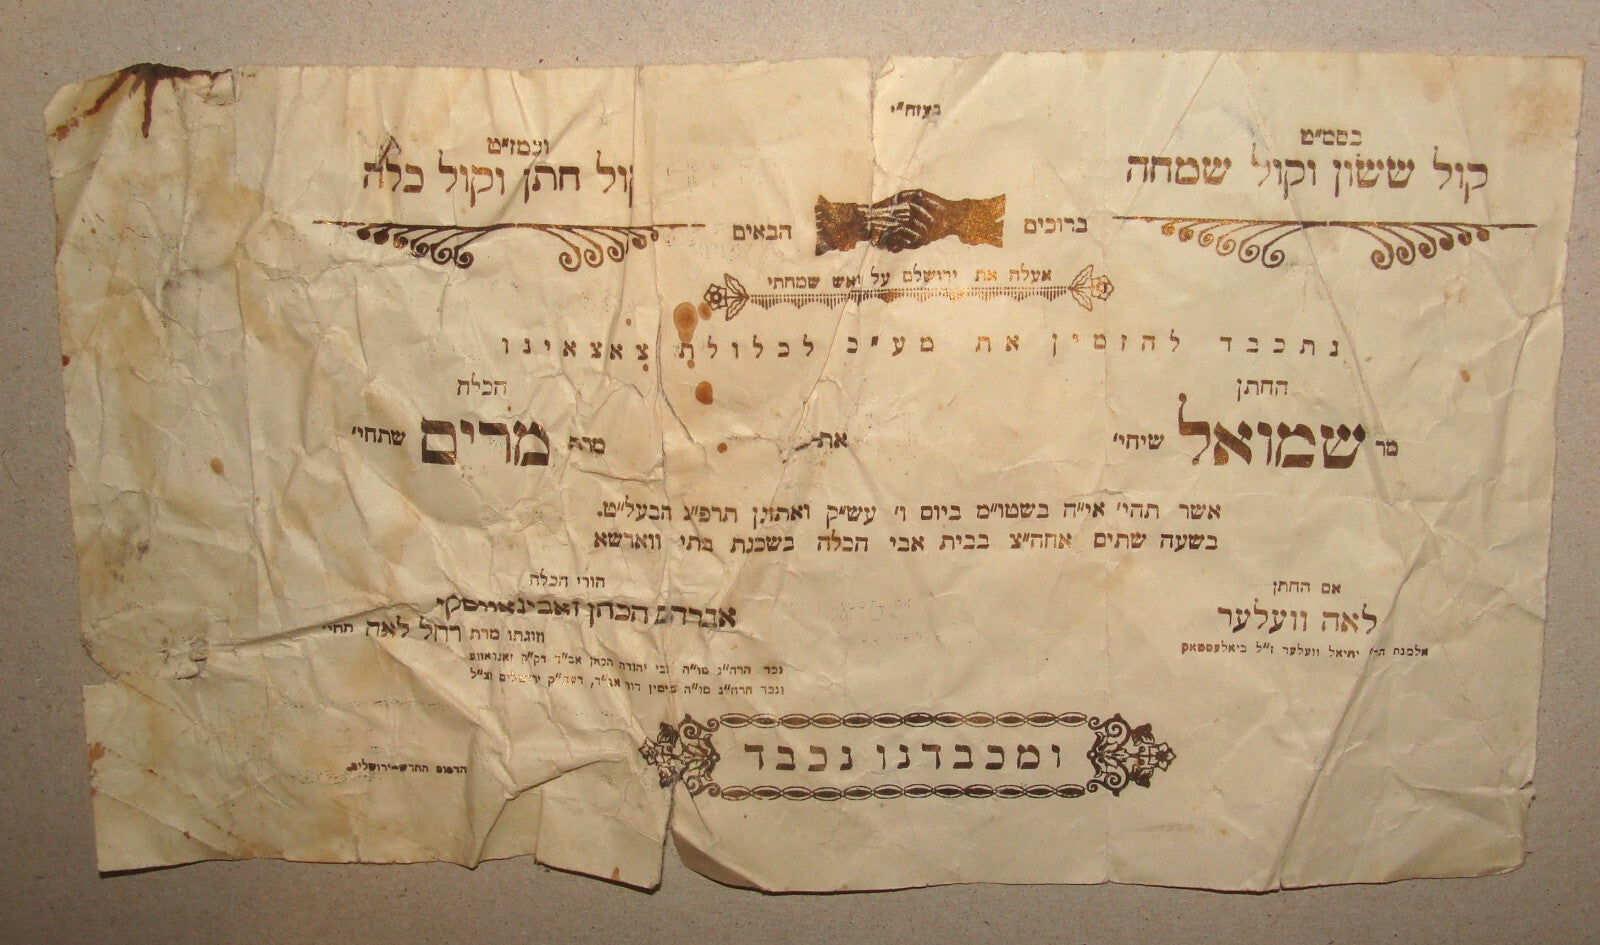 בעזה"י
בסמ"ט
קול ששון וקול שמחה
ובמז"ט
קול חתן וקול כלה
ברוכים
הבאים
אעלה את ירושלם על ראש שמחתי
נתכבד להזמין את מע"כ לכלולת צאצאינו
החתן
הכלה
מר שמואל שיחי'
את
מרת מרים שתחי'
אשר תהי' אי"ה בשטו"מ ביום ו' עש"ק ואתחנן תרפ"ג הבעל"ט.
בשעה שתים אחה"צ בבית אבי הכלה בשכנת בתי ווארשא
אם החתן
לאה וועלער
אלמנת הר' יחיאל וועלער ז"ל ביאלעסטאק
הורי הכלה
אברהם הכהן
וזוגתו מרת רחל לאה תחי'
נכד הרה"ג מו"ה רבי יהודה הכהן אב"ד דק"ק
ונכד הרה"ג מו"ה דור ירושלים זצ"ל
ומכבדנו נכבד
הדפוס החדש–ירושלים